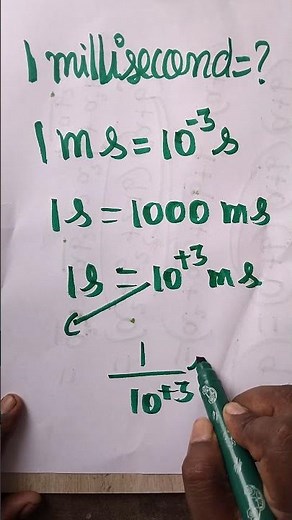 1 millisecond=?
1 ms=10⁻³s
1s = 1000 ms
1s = 10⁺³ms
1
10⁺³